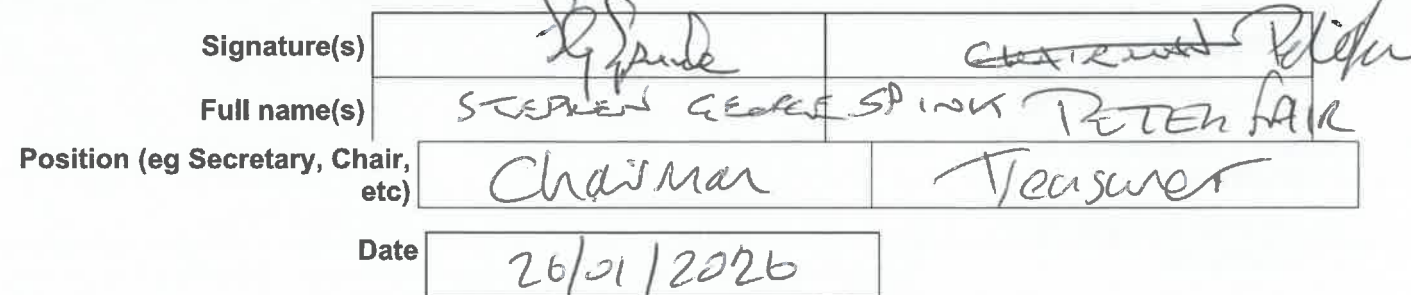 Signature(s) CHAIRMAN
Full name(s) STEPHEN GEORGE SPINK PETER FAIR
Position (eg Secretary, Chair, etc) Chairman Treasurer
Date 26/01/2026